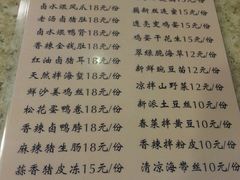 卤水焗凤爪18元/份
老汤卤猪肚18元/份
卤水焗鸭胗18元/份
香辣金钱肚18元/份
红油卤猪耳18元/份
天然拌海蜇18元/份
鲜沙姜鸡丝18元/份
松花蛋鸭卷18元/份
香辣卤鸭脖18元/份
麻辣猪生肠18元/份
蒜香猪皮冻15元/份
15元/份
15元/份
鸡蛋干花生15元/份
翠绿脆海草12元/份
新鲜豌豆苗12元/份
凉拌山野菜12元/份
新派土豆丝10元/份
春菜拌黄豆10元/份
香辣拌粉皮10元/份
清凉海带丝10元/份